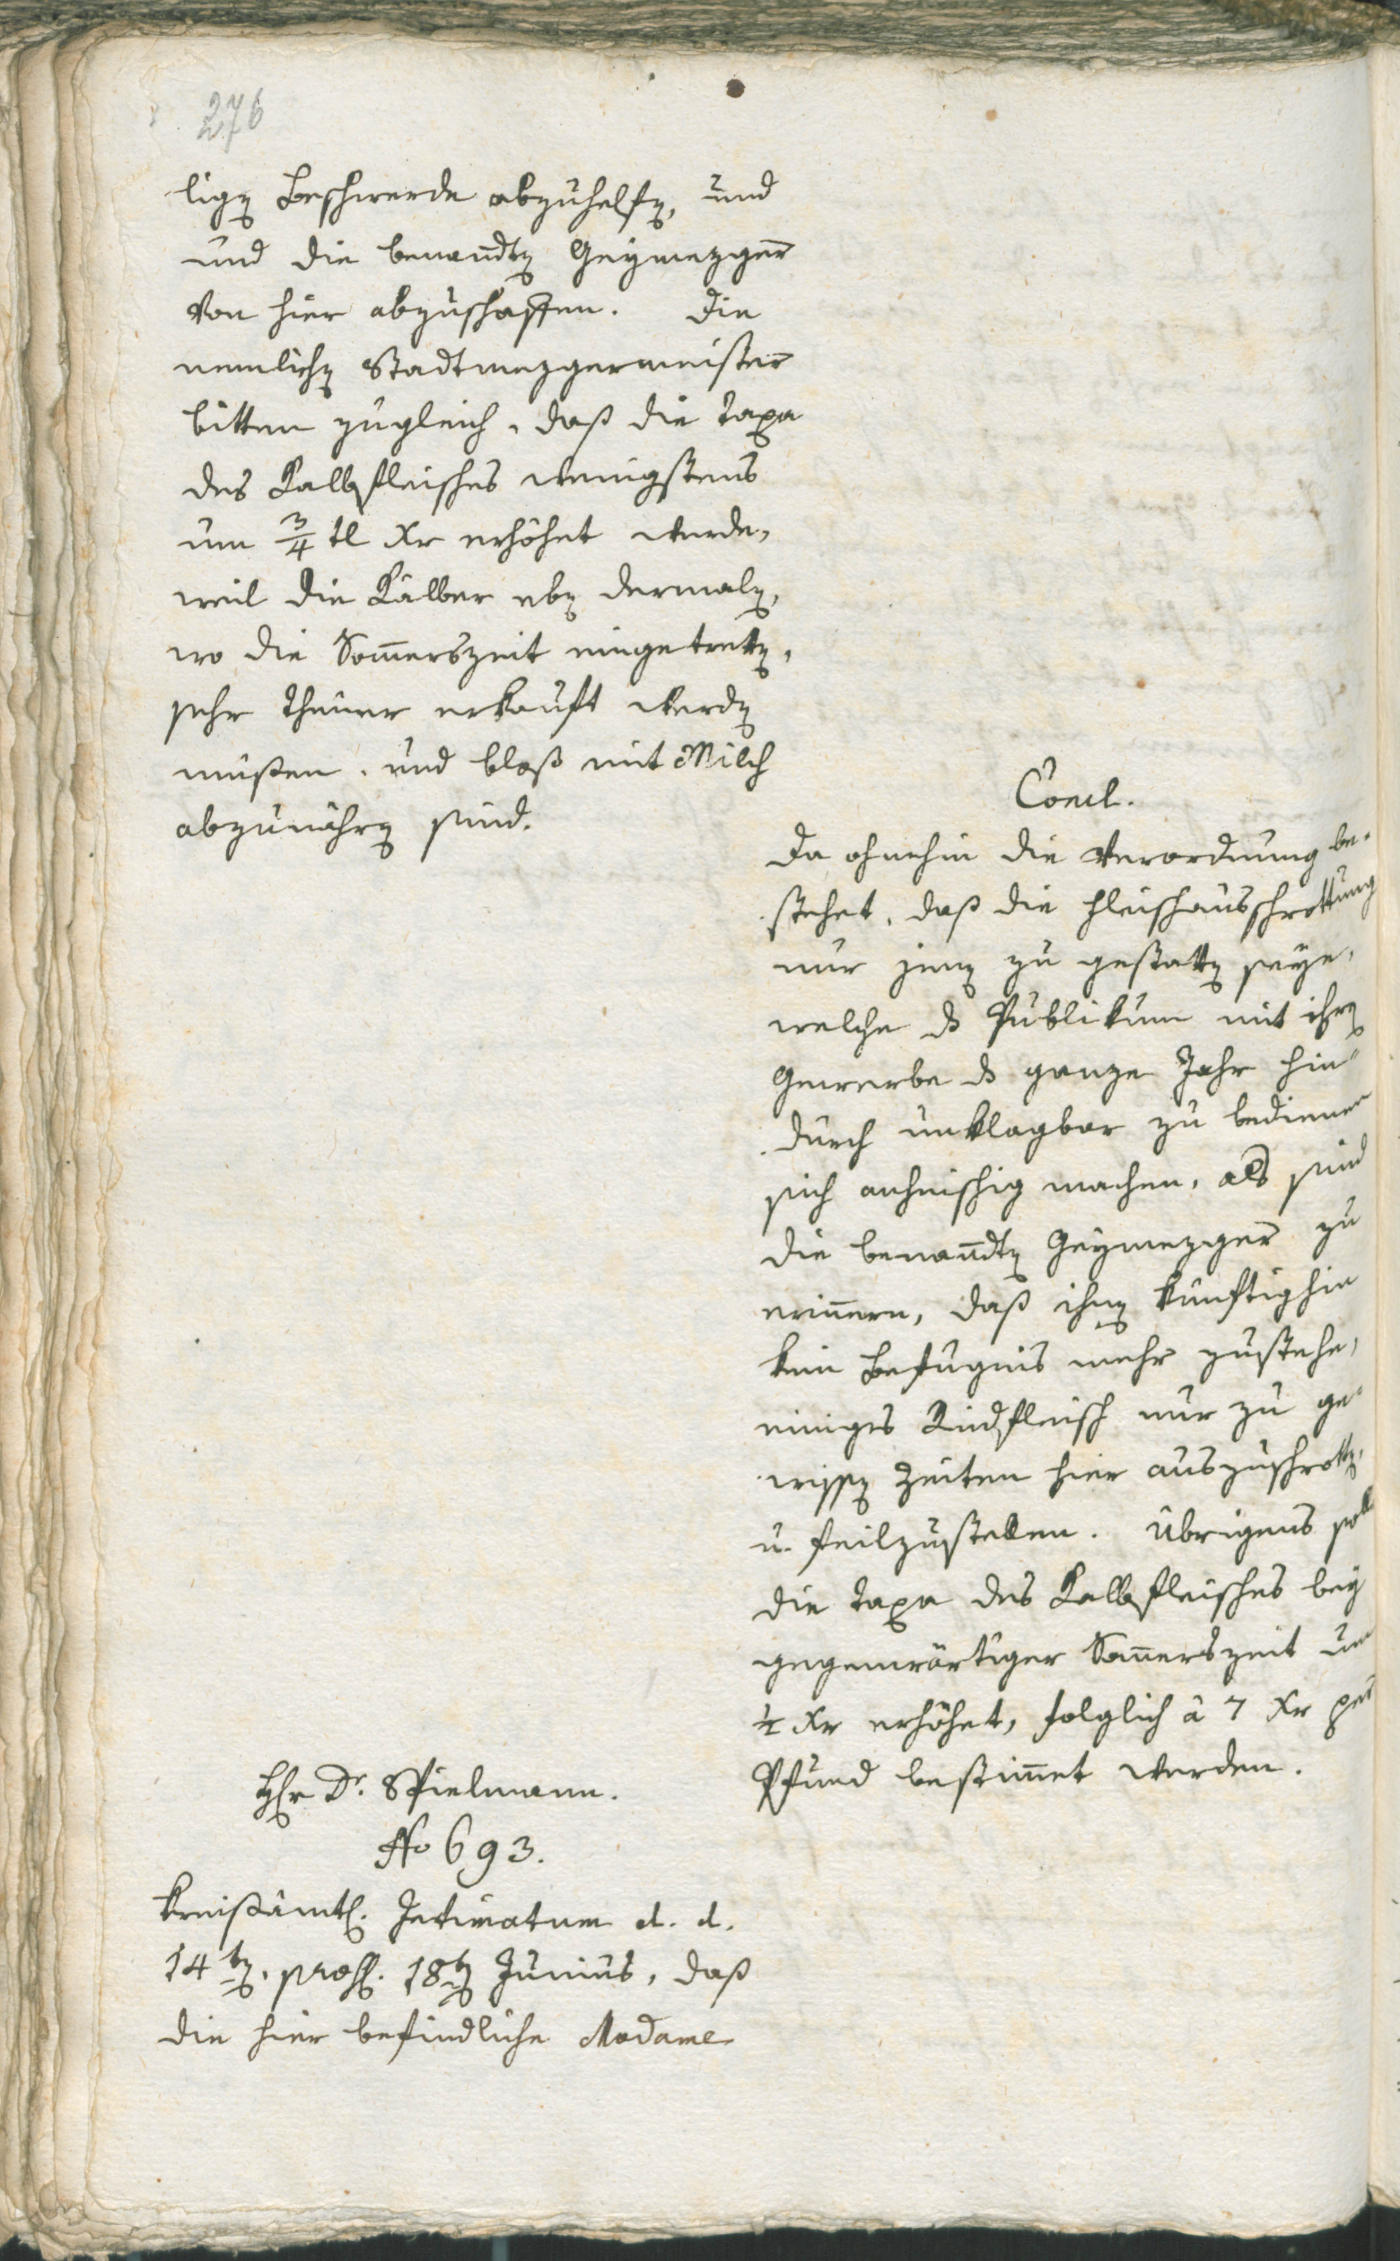 276
ligen Beschwerde abzuhelfen, und
und die benandten Geymezger
von hier abzuschaffen. Die
nemlichen Stadtmezgermeister
bitten zugleich, daß die Taxa
des Kalbfleisches wenigstens
um 3/4 tl Xr erhöhet werde,
weil die Kälber eben dermalen,
wo die Som̄erszeit eingetretten,
sehr theuer erkauft werden
müßen, und bloß mit Milch
abzunähren sind.
Concl.
Da ohnehin die Verordnung be-
stehet, daß die Fleischausschrottung
nur jenen zu gestatten seye,
welche ds Publikum mit ihren
Gewerbe ds ganze Jahr hin-
durch unklagbar zu bedienen
sich anheischig machen, als sind
die benan̄dten Geymezger zu
erin̄ern, daß ihnen künftighin
kein Befugnis mehr zustehe,
einiges Rindfleisch nur zu ge-
wissen Zeiten hier auszuschrotten,
u. feilzustellen. Übrigens soll
die Taxa des Kalbfleisches bey
gegenwärtiger Som̄erszeit um
1/2 Xr erhöhet, folglich à 7 Xr per
Pfund bestim̄et werden.
Hr Dr. Spielmann.
No 693.
Kreisämtl. Intimatum d. d.
14ten, præs. 18ten Junius, daß
die hier befindliche Madame